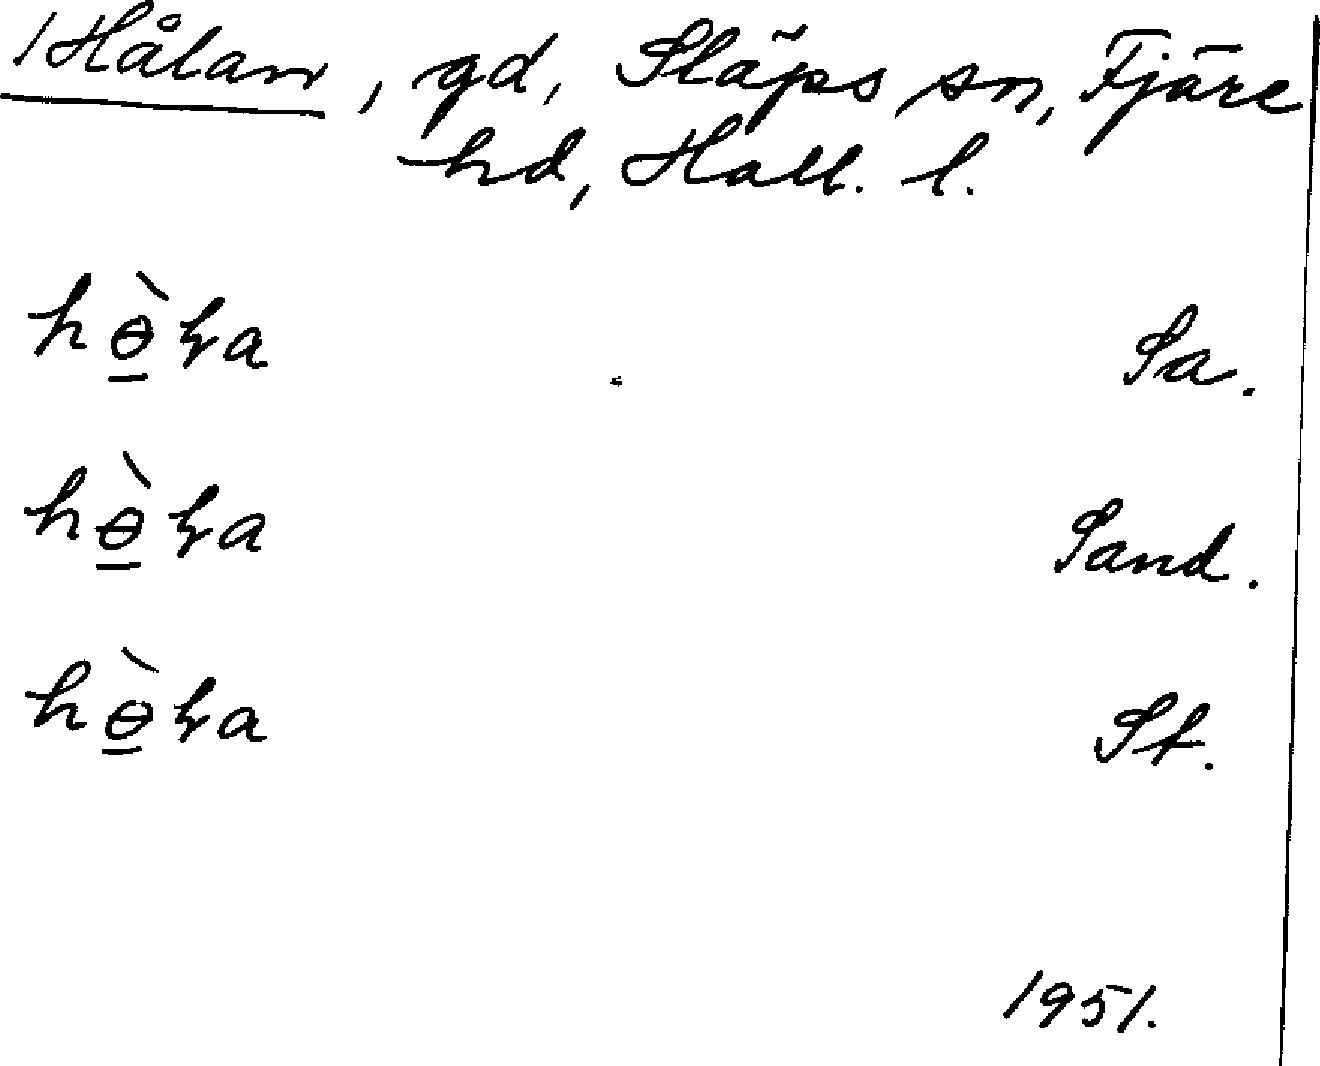 Hålan, gd, Släps sn, Fjäre
hd, Hall. l.
hɵ̲̀ɽa Sa.
hɵ̲̀ɽa Sand.
hɵ̲̀ɽa St.
1951.